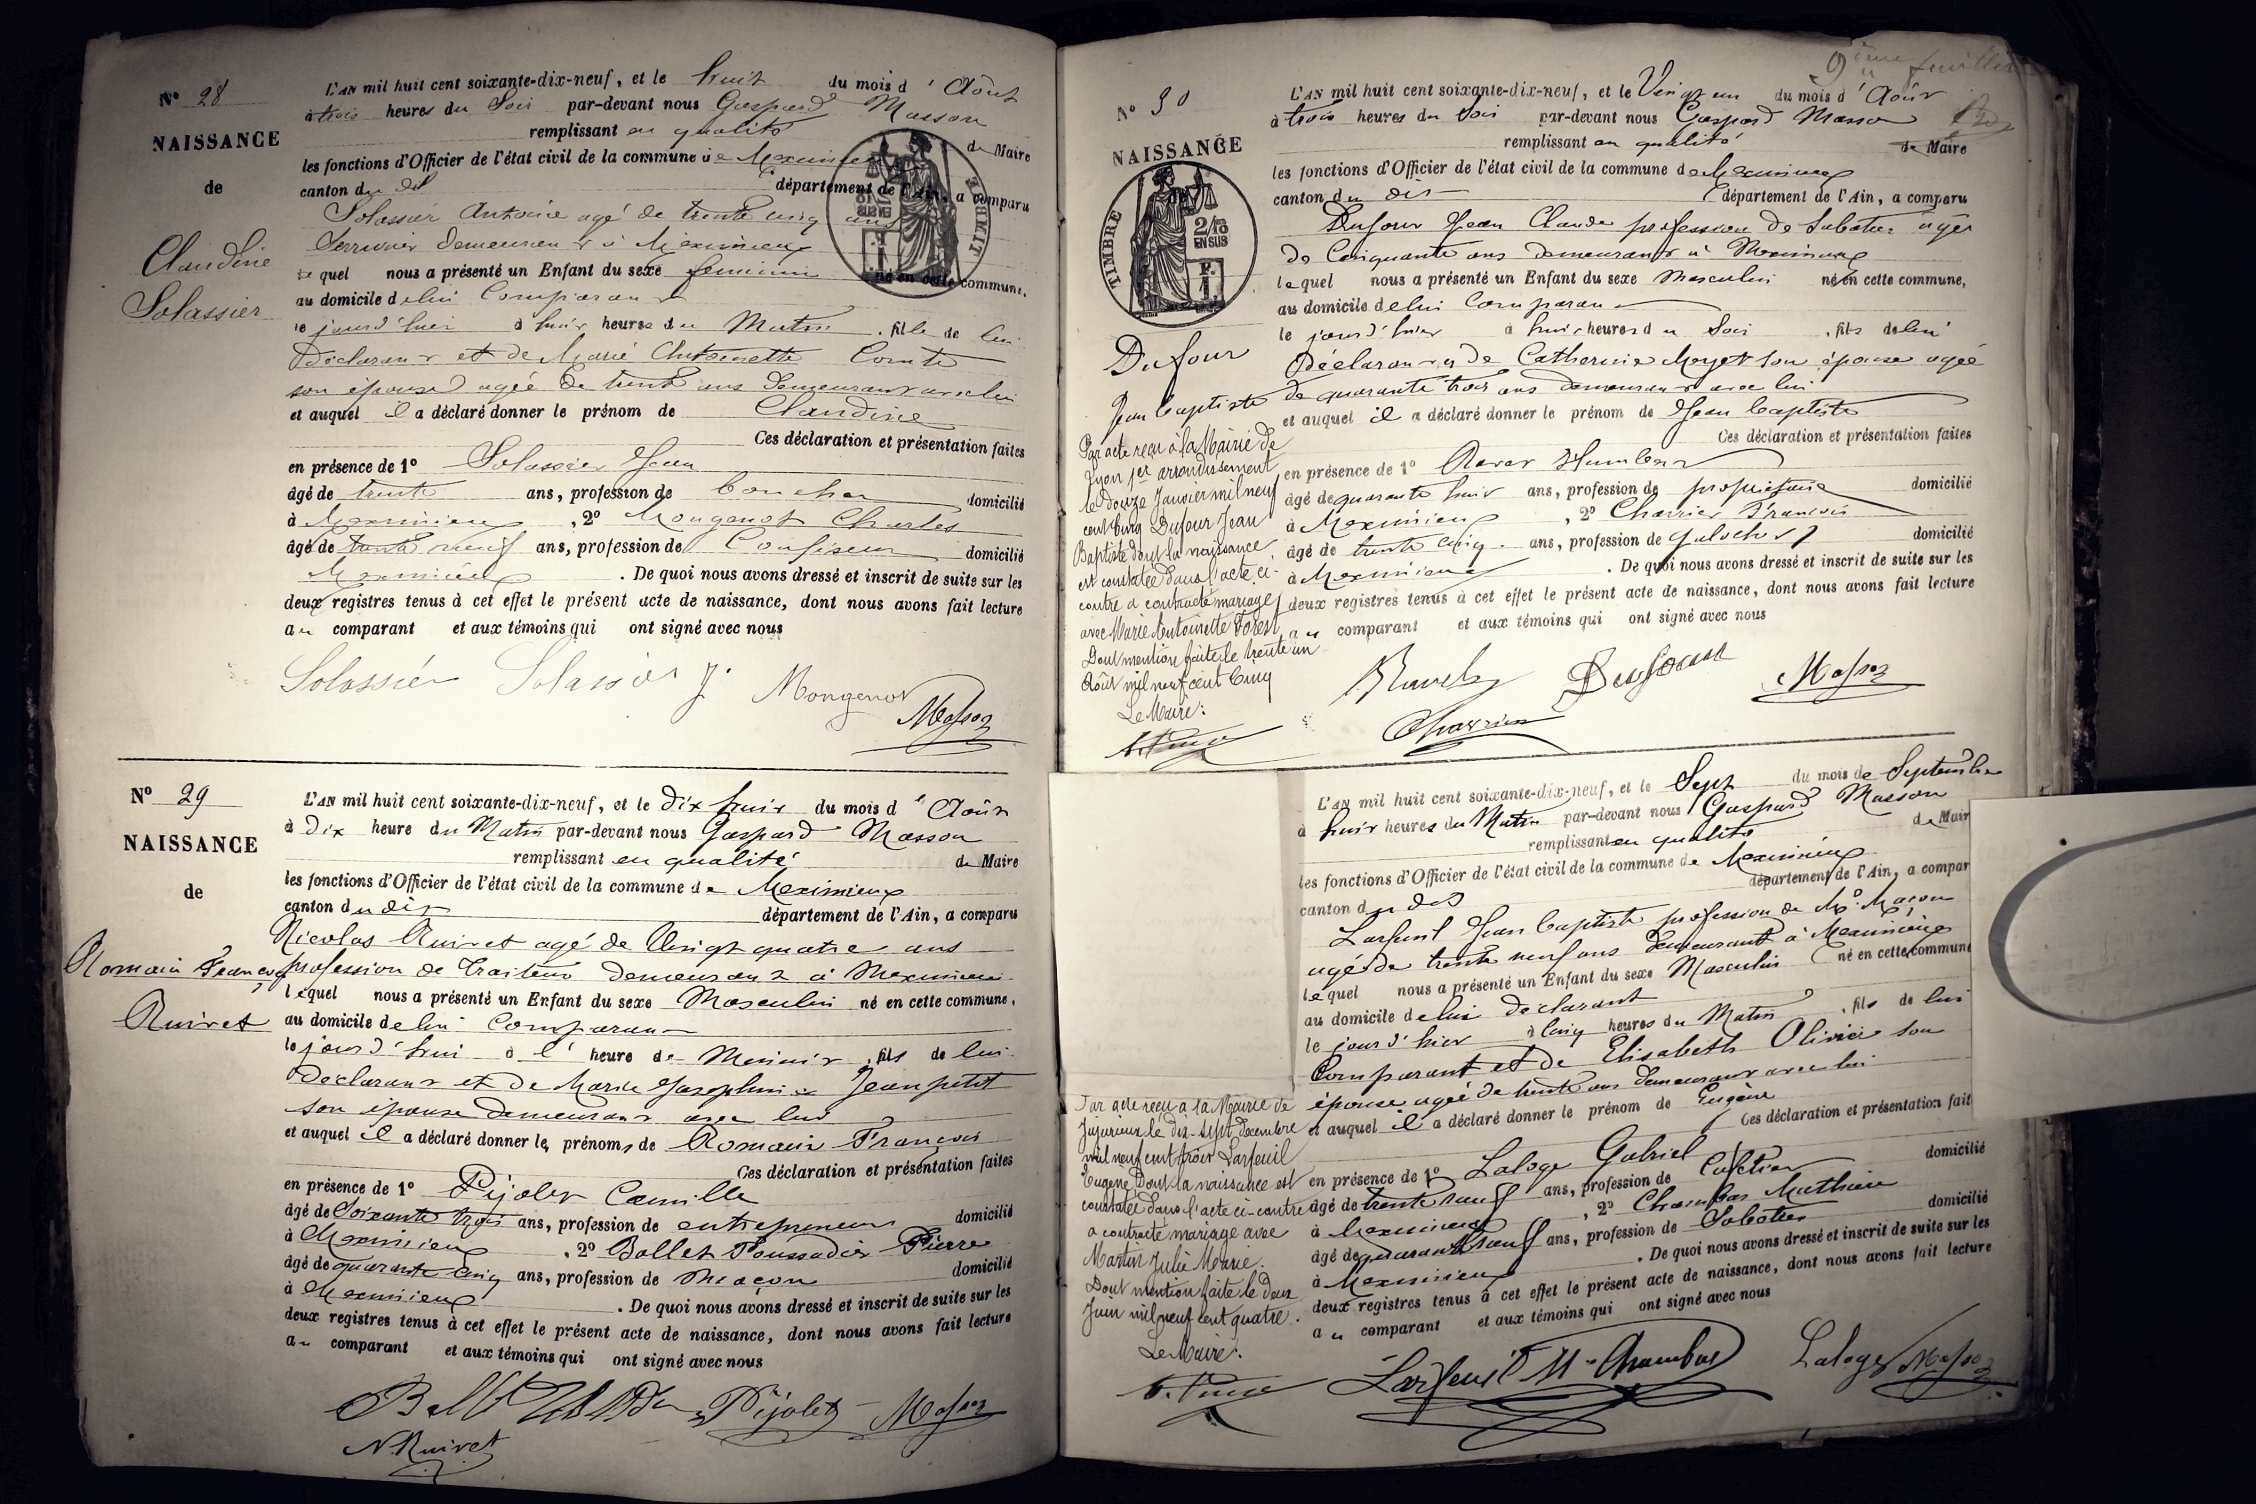 N° 28
NAISSANCE
de
Claudine
Solassier
L'AN mil huit cent soixante-dix-neuf, et le huit du mois d'Août
à trois heures du Soir par-devant nous Gaspard Masson
remplissant en qualité de Maire
les fonctions d'Officier de l'état civil de la commune de Meximieux
canton du dit département de l'Ain, a comparu
Solassier Antoine agé de trente cinq ans
Serrurier demeurant à Meximieux
lequel nous a présenté un Enfant du sexe feminin né en cette commune,
au domicile de lui Comparant
le jourd'hui à huit heures du Matin, fille de lui
Déclarant et de Marie Antoinette Comte
son épouse agée de trente ans demeurant avec lui
et auquel il a déclaré donner le prénom de Claudine
Ces déclaration et présentation faites
en présence de 1° Solassier Jean
âgé de trente ans, profession de boucher domicilié
à Meximieux, 2° Mougenot Charles
âgé de trente neuf ans, profession de Confiseur domicilié
Meximieux. De quoi nous avons dressé et inscrit de suite sur les
deux registres tenus à cet effet le présent acte de naissance, dont nous avons fait lecture
au comparant et aux témoins qui ont signé avec nous
Solassier Solassier J. Mongenot Masson
TIMBRE
N° 29
NAISSANCE
de
Romain François
Ruivet
L'AN mil huit cent soixante-dix-neuf, et le dix huit du mois d'Août
à dix heure du Matin par-devant nous Gaspard Masson
remplissant en qualité de Maire
les fonctions d'Officier de l'état civil de la commune de Meximieux
canton du dit département de l'Ain, a comparu
Nicolas Ruivet agé de Vingt quatre ans
profession de Traiteur demeurant à Meximieux
lequel nous a présenté un Enfant du sexe Masculin né en cette commune,
au domicile de lui Comparant
le jourd'hui à l' heure de Minuit, fils de lui
déclarant et de Marie Josephine Jeanpetit
son épouse demeurant avec lui
et auquel il a déclaré donner les prénoms de Romain François
Ces déclaration et présentation faites
en présence de 1° Pijolet Camille
âgé de Soixante trois ans, profession de entrepreneur domicilié
à Meximieux, 2° Bollet Poussadier Pierre
âgé de quarante cinq ans, profession de Maçon domicilié
à Meximieux. De quoi nous avons dressé et inscrit de suite sur les
deux registres tenus à cet effet le présent acte de naissance, dont nous avons fait lecture
au comparant et aux témoins qui ont signé avec nous
Pijolet Masson
N. Ruivet
9ème feuillet
N° 30
NAISSANCE
TIMBRE
2/10 EN SUS
Dufour
Jean baptiste
L'AN mil huit cent soixante-dix-neuf, et le Vingt un du mois d'Août
à trois heures du Soir par-devant nous Gaspard Masson
remplissant en qualité de Maire
les fonctions d'Officier de l'état civil de la commune de Meximieux
canton du dit département de l'Ain, a comparu
Dufour Jean Claude profession de Sabotier agé
de Cinquante ans demeurant à Meximieux
lequel nous a présenté un Enfant du sexe Masculin né en cette commune,
au domicile de lui Comparant
le jourd'hier à huit heures du Soir, fils de lui
Déclarant et de Catherine Moyet son épouse agée
de quarante trois ans demeurant avec lui
et auquel il a déclaré donner le prénom de Jean baptiste
Ces déclaration et présentation faites
en présence de 1° Humbert
âgé de quarante huit ans, profession de propriétaire domicilié
à Meximieux, 2° Charrier François
âgé de trente cinq ans, profession de domicilié
à Meximieux. De quoi nous avons dressé et inscrit de suite sur les
deux registres tenus à cet effet le présent acte de naissance, dont nous avons fait lecture
au comparant et aux témoins qui ont signé avec nous
Dufour Masson
Charrier
Par acte reçu à la Mairie de
Lyon 1er arrondissement
le douze Janvier mil neuf
cent cinq Dufour Jean
Baptiste dont la naissance
est constatée dans l'acte ci-
contre a contracté mariage
avec Marie Antoinette Forest
Dont mention faite le trente un
Août mil neuf cent Cinq
Le Maire:
L'AN mil huit cent soixante-dix-neuf, et le Sept du mois de Septembre
à huit heures du Matin par-devant nous Gaspard Masson
remplissant en qualité de Mair
les fonctions d'Officier de l'état civil de la commune de Meximieux
canton du dit département de l'Ain, a compar
Larfeuil Jean baptiste profession de Me Maçon
agé de trente neuf ans demeurant à Meximieux
lequel nous a présenté un Enfant du sexe Masculin né en cette commun
au domicile de lui déclarant
le jourd'hier à cinq heures du Matin, fils de lui
Comparant et de Elisabeth Olivier son
épouse agée de trente ans demeurant avec lui
et auquel il a déclaré donner le prénom de Eugène
Ces déclaration et présentation fait
en présence de 1° Laloge Gabriel
âgé de trente neuf ans, profession de Cafetier domicilié
à Meximieux, 2° Chambas Mathieu
âgé de quarante neuf ans, profession de Sabotier domicilié
à Meximieux. De quoi nous avons dressé et inscrit de suite sur les
deux registres tenus à cet effet le présent acte de naissance, dont nous avons fait lecture
au comparant et aux témoins qui ont signé avec nous
Larfeuil M Chambas Laloge Masson
Par acte reçu à la Mairie de
Jujurieux le dix-sept Décembre
mil neuf cent trois Larfeuil
Eugène Dont la naissance est
constatée dans l'acte ci-contre
a contracté mariage avec
Martin Julie Marie.
Dont mention faite le deux
Juin mil neuf cent quatre.
Le Maire: